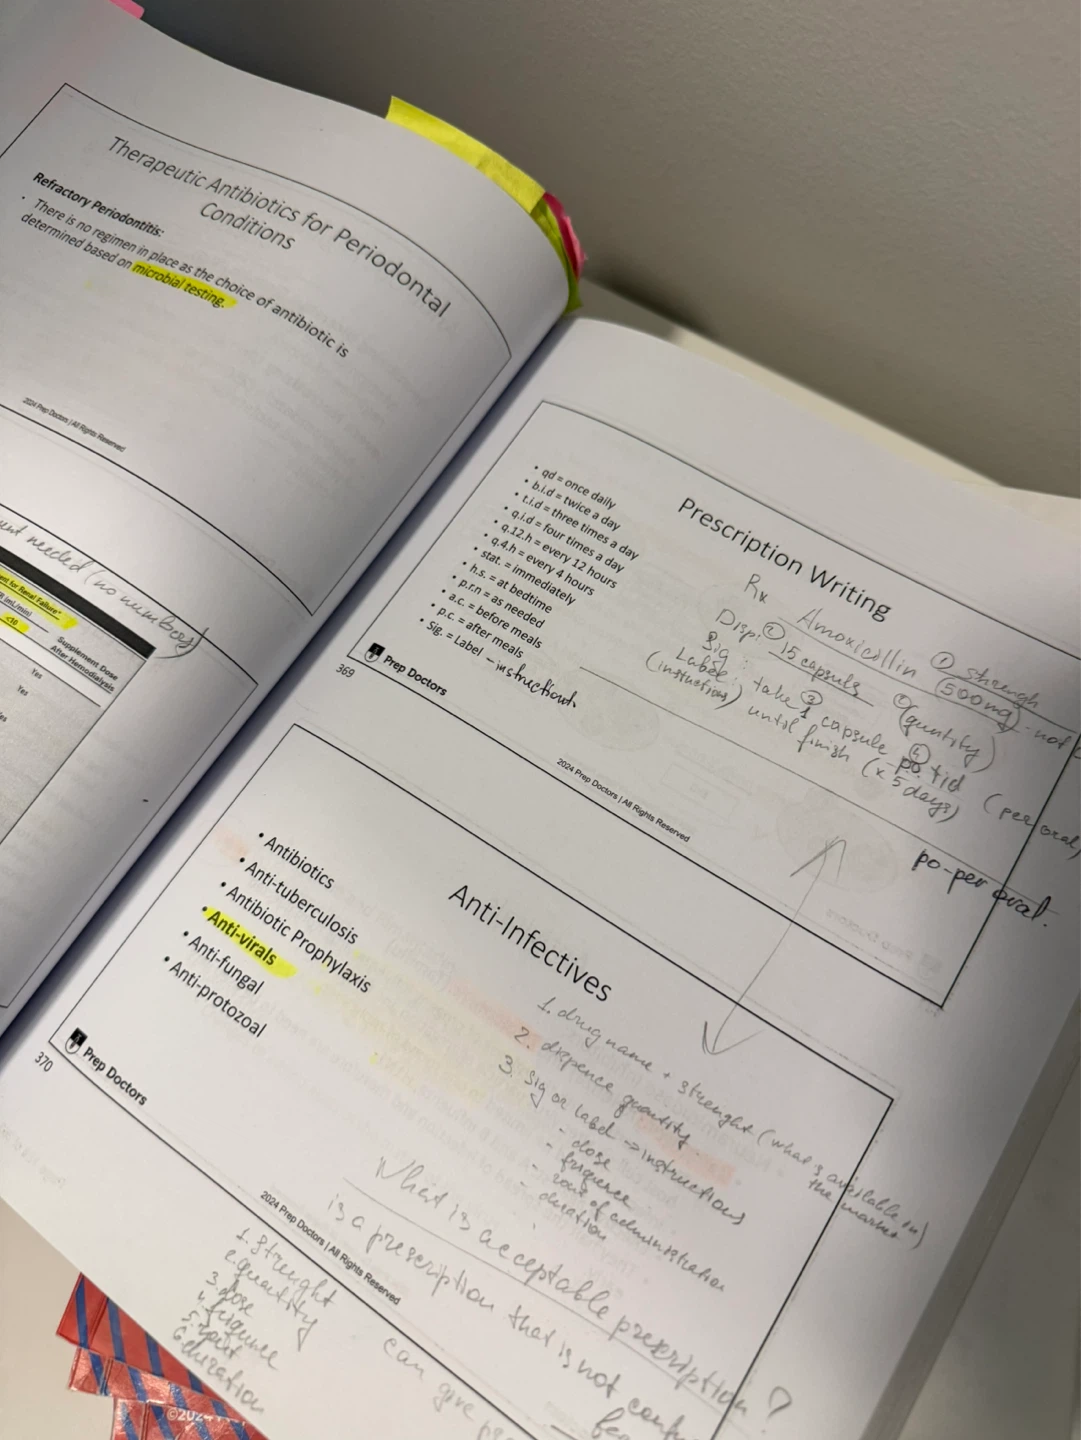 Therapeutic Antibiotics for Periodontal
Conditions
Refractory Periodontitis:
• There is no regimen in place as the choice of antibiotic is
determined based on microbial testing.
2024 Prep Doctors | All Rights Reserved
needed (no numbers)
for Renal Failure"
(mL/min)
<10
Supplement Dose
After Hemodialysis
Yes
Yes
Prescription Writing
• qd = once daily
• b.i.d = twice a day
• t.i.d = three times a day
• q.i.d = four times a day
• q.12.h = every 12 hours
• q.4.h = every 4 hours
• stat. = immediately
• h.s. = at bedtime
• p.r.n = as needed
• a.c. = before meals
• p.c. = after meals
• Sig. = Label - instruction
Rx Amoxicillin ① strengh
(500mg) not
Disp: ② 15 capsuls ② (quntity)
Sig:
Label: take 1 capsule po tid (per oral)
③ ④
(instuctions) until finish (x 5 days)
po-per oral.
Prep Doctors
369
2024 Prep Doctors | All Rights Reserved
Anti-Infectives
• Antibiotics
• Anti-tuberculosis
• Antibiotic Prophylaxis
• Anti-virals
• Anti-fungal
• Anti-protozoal
1. drug name + strenght (what is available in)
the market
2. dispence quantity
3. Sig or label -> instructions
- dose
- friquence
- rout of administration
- duration
Prep Doctors
370
2024 Prep Doctors | All Rights Reserved
What is acceptable prescription?
is a prescription that is not
can give
1. Strenght
2. quantity
3. dose
4. friquence
5. rout
6. duration
©2024